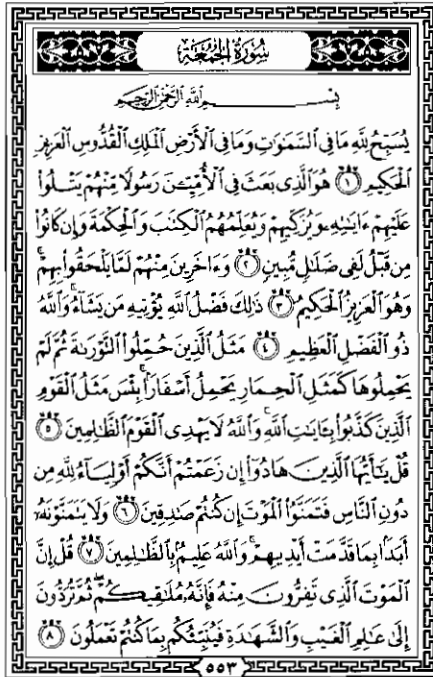 سُورَةُ الْجُمُعَةِ
بِسْمِ اللَّهِ الرَّحْمَٰنِ الرَّحِيمِ
يُسَبِّحُ لِلَّهِ مَا فِي السَّمَٰوَٰتِ وَمَا فِي الْأَرْضِ الْمَلِكِ الْقُدُّوسِ الْعَزِيزِ
الْحَكِيمِ ١ هُوَ الَّذِي بَعَثَ فِي الْأُمِّيِّـۧنَ رَسُولًا مِّنْهُمْ يَتْلُوا۟
عَلَيْهِمْ ءَايَٰتِهِۦ وَيُزَكِّيهِمْ وَيُعَلِّمُهُمُ الْكِتَٰبَ وَالْحِكْمَةَ وَإِن كَانُوا۟
مِن قَبْلُ لَفِي ضَلَٰلٍ مُّبِينٍ ٢ وَءَاخَرِينَ مِنْهُمْ لَمَّا يَلْحَقُوا۟ بِهِمْ ۚ
وَهُوَ الْعَزِيزُ الْحَكِيمُ ٣ ذَٰلِكَ فَضْلُ اللَّهِ يُؤْتِيهِ مَن يَشَآءُ ۚ وَاللَّهُ
ذُو الْفَضْلِ الْعَظِيمِ ٤ مَثَلُ الَّذِينَ حُمِّلُوا۟ التَّوْرَىٰةَ ثُمَّ لَمْ
يَحْمِلُوهَا كَمَثَلِ الْحِمَارِ يَحْمِلُ أَسْفَارًۢا ۚ بِئْسَ مَثَلُ الْقَوْمِ
الَّذِينَ كَذَّبُوا۟ بِـَٔايَٰتِ اللَّهِ ۚ وَاللَّهُ لَا يَهْدِي الْقَوْمَ الظَّٰلِمِينَ ٥
قُلْ يَٰٓأَيُّهَا الَّذِينَ هَادُوٓا۟ إِن زَعَمْتُمْ أَنَّكُمْ أَوْلِيَآءُ لِلَّهِ مِن
دُونِ النَّاسِ فَتَمَنَّوُا۟ الْمَوْتَ إِن كُنتُمْ صَٰدِقِينَ ٦ وَلَا يَتَمَنَّوْنَهُۥٓ
أَبَدًۢا بِمَا قَدَّمَتْ أَيْدِيهِمْ ۚ وَاللَّهُ عَلِيمٌۢ بِالظَّٰلِمِينَ ٧ قُلْ إِنَّ
الْمَوْتَ الَّذِي تَفِرُّونَ مِنْهُ فَإِنَّهُۥ مُلَٰقِيكُمْ ۖ ثُمَّ تُرَدُّونَ
إِلَىٰ عَٰلِمِ الْغَيْبِ وَالشَّهَٰدَةِ فَيُنَبِّئُكُم بِمَا كُنتُمْ تَعْمَلُونَ ٨
٥٥٣